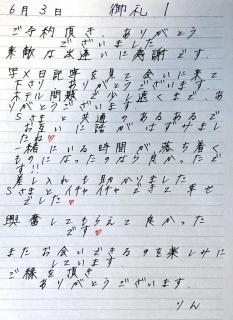 6月3日 御礼 1
ご予約頂き、ありがとう
ございました
素敵な出逢いに感謝です。
写メ日記等を見て会いに来て
下さり ありがとうございます
ホテル問題で少し遠くまで、あ
りがとうございます
Sさまと共通のあるあるで
お互いに話がはずみまし
たね♡
一緒にいる時間が落ち着く
ものになったのなら良かったで
す!!
差し入れも助かりました
Sさまとイチャイチャできて幸せ
でした♡
興奮してもらえて良かった
です♡
またお会いできるのを楽しみに
しています
ご縁を頂き
ありがとうございます。
りん